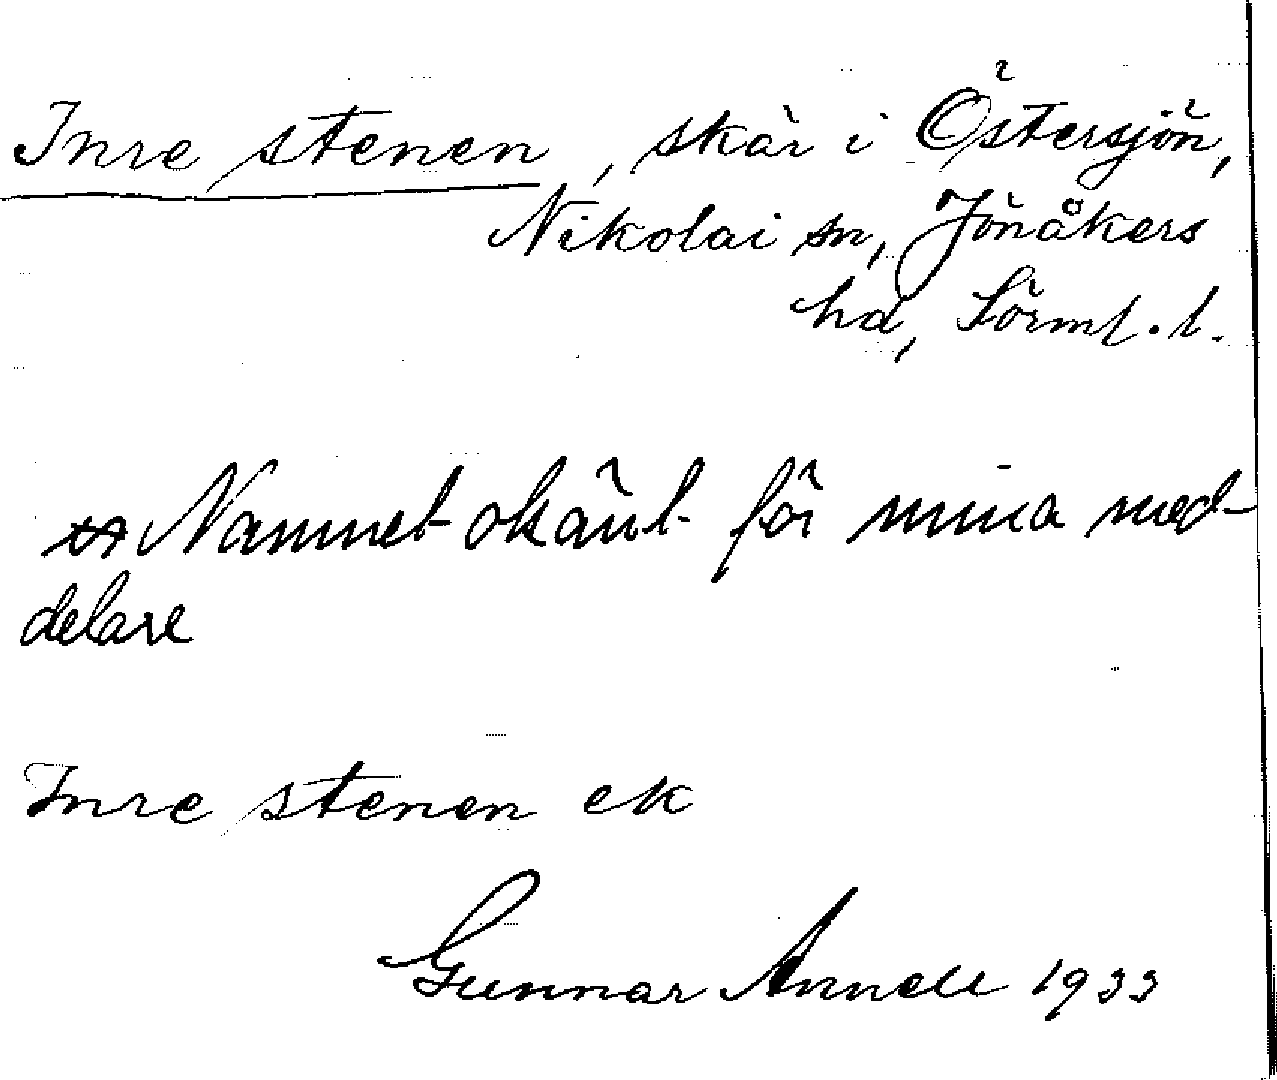 Inre stenen, skär i Östersjön,
Nikolai sn, Jönåkers
hd, Sörml. l.
Namnet okänt för mina med-
delare
Inre stenen ek
Gunnar Annell 1933